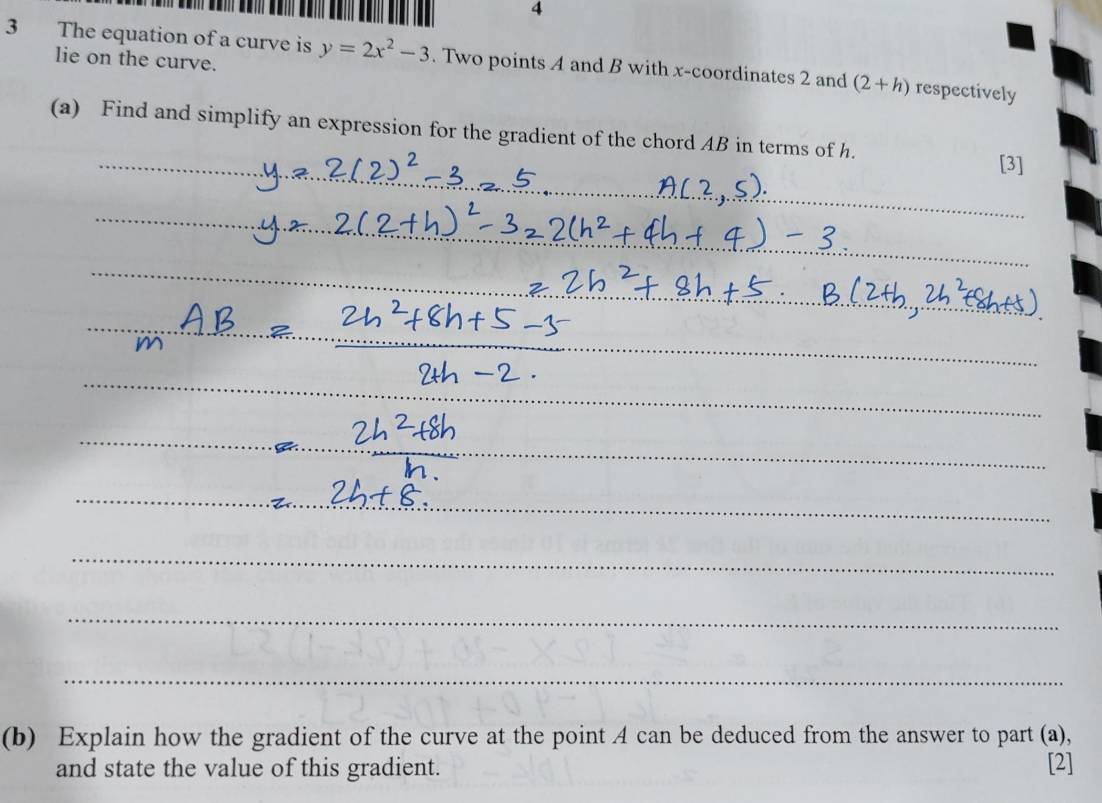 4
3 The equation of a curve is y = 2x² − 3. Two points A and B with x-coordinates 2 and (2 + h) respectively
lie on the curve.
(a) Find and simplify an expression for the gradient of the chord AB in terms of h.
[3]
y = 2(2)² - 3 = 5. A(2, 5).
y = 2(2+h)² - 3 = 2(h² + 4h + 4) - 3.
= 2h² + 8h + 5. B(2+h, 2h²+8h+5).
m AB = (2h²+8h+5-5)/(2+h-2).
= (2h²+8h)/h.
= 2h+8.
(b) Explain how the gradient of the curve at the point A can be deduced from the answer to part (a),
and state the value of this gradient. [2]